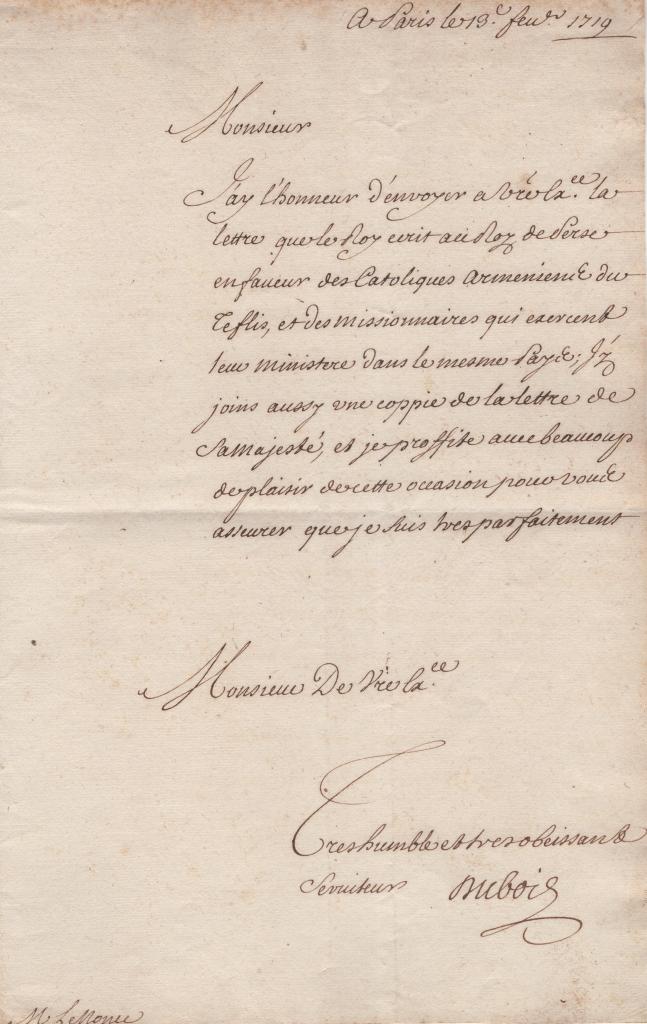 A Paris le 13.e feur. 1719
Monsieur
J'ay l'honneur d'envoyer a Vre Ex.ce la
lettre que le Roy ecrit au Roy de Perse
en faueur des Catoliques Armeniens du
Teflis, et des missionnaires qui exercent
leur ministere dans le mesme Pays; J'y
joins aussy vne coppie de la lettre de
Sa majesté, et je proffite auec beaucoup
de plaisir de cette occasion pour vous
asseurer que je suis tres parfaitement
Monsieur De Vre Ex.ce
Tres humble et tres obeissant
Seruiteur Dubois
M.